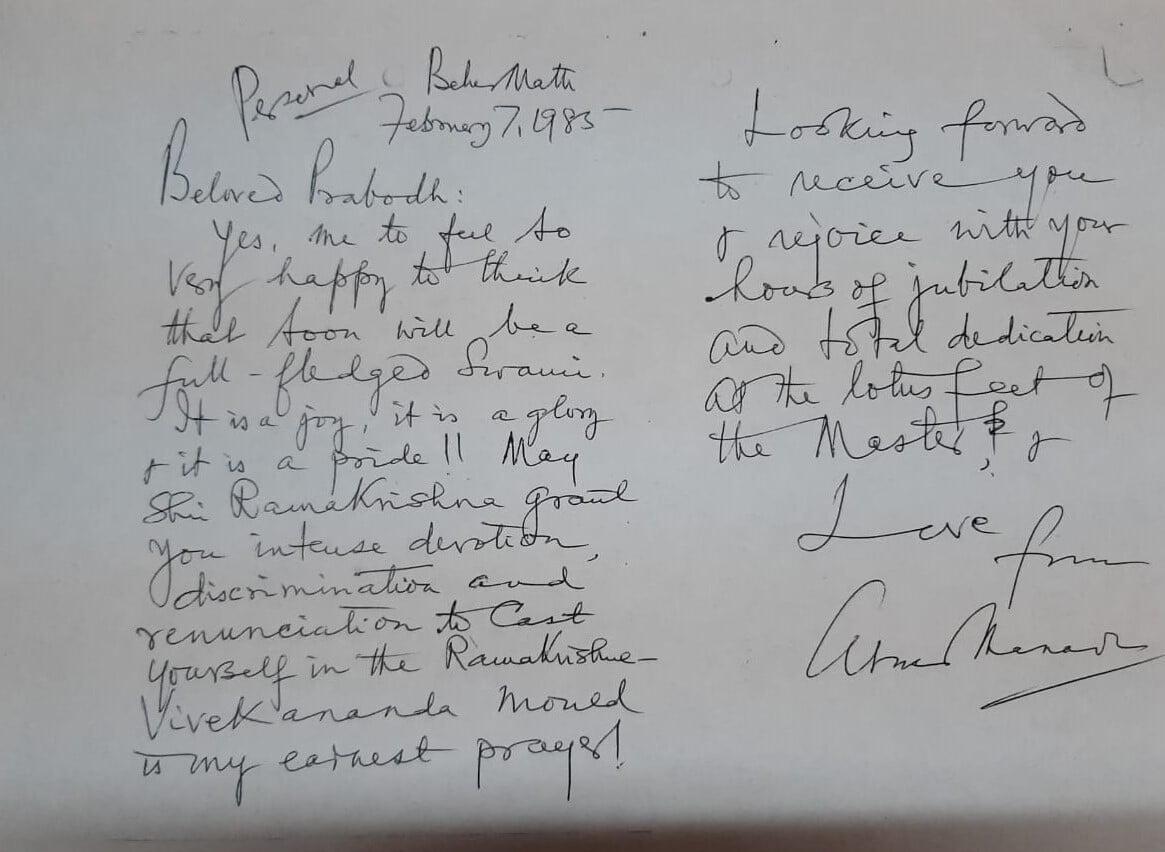 Personal Belur Math
February 7, 1985
Beloved Prabodh:
Yes, me to feel so
very happy to think
that soon will be a
full-fledged Swami.
It is a joy, it is a glory
& it is a pride!! May
Shri RamaKrishna grant
you intense devotion,
discrimination and
renunciation to Cast
yourself in the RamaKrishna-
ViveKananda mould
is my earnest prayer!
Looking forward
to receive you
& rejoice with your
hours of jubilation
and total dedication
at the lotus feet of
the Master! &
Love
from